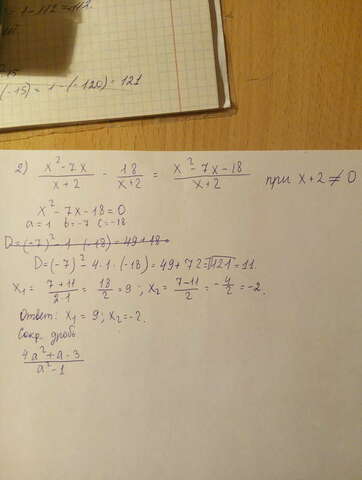 = 1 - 112 = -111.
(-15) = 1 - (-120) = 121
2) x² - 7x / x + 2 - 18 / x + 2 = x² - 7x - 18 / x + 2 при x + 2 ≠ 0
x² - 7x - 18 = 0
a = 1 b = -7 c = -18
D = (-7)² - 1 · (-18) = 49 + 18 =
D = (-7)² - 4 · 1 · (-18) = 49 + 72 = √121 = 11.
x₁ = 7 + 11 / 2 · 1 = 18 / 2 = 9 ; x₂ = 7 - 11 / 2 = - 4 / 2 = -2.
Ответ: x₁ = 9; x₂ = -2.
Сокр. дробь
4a² + a - 3 / a² - 1